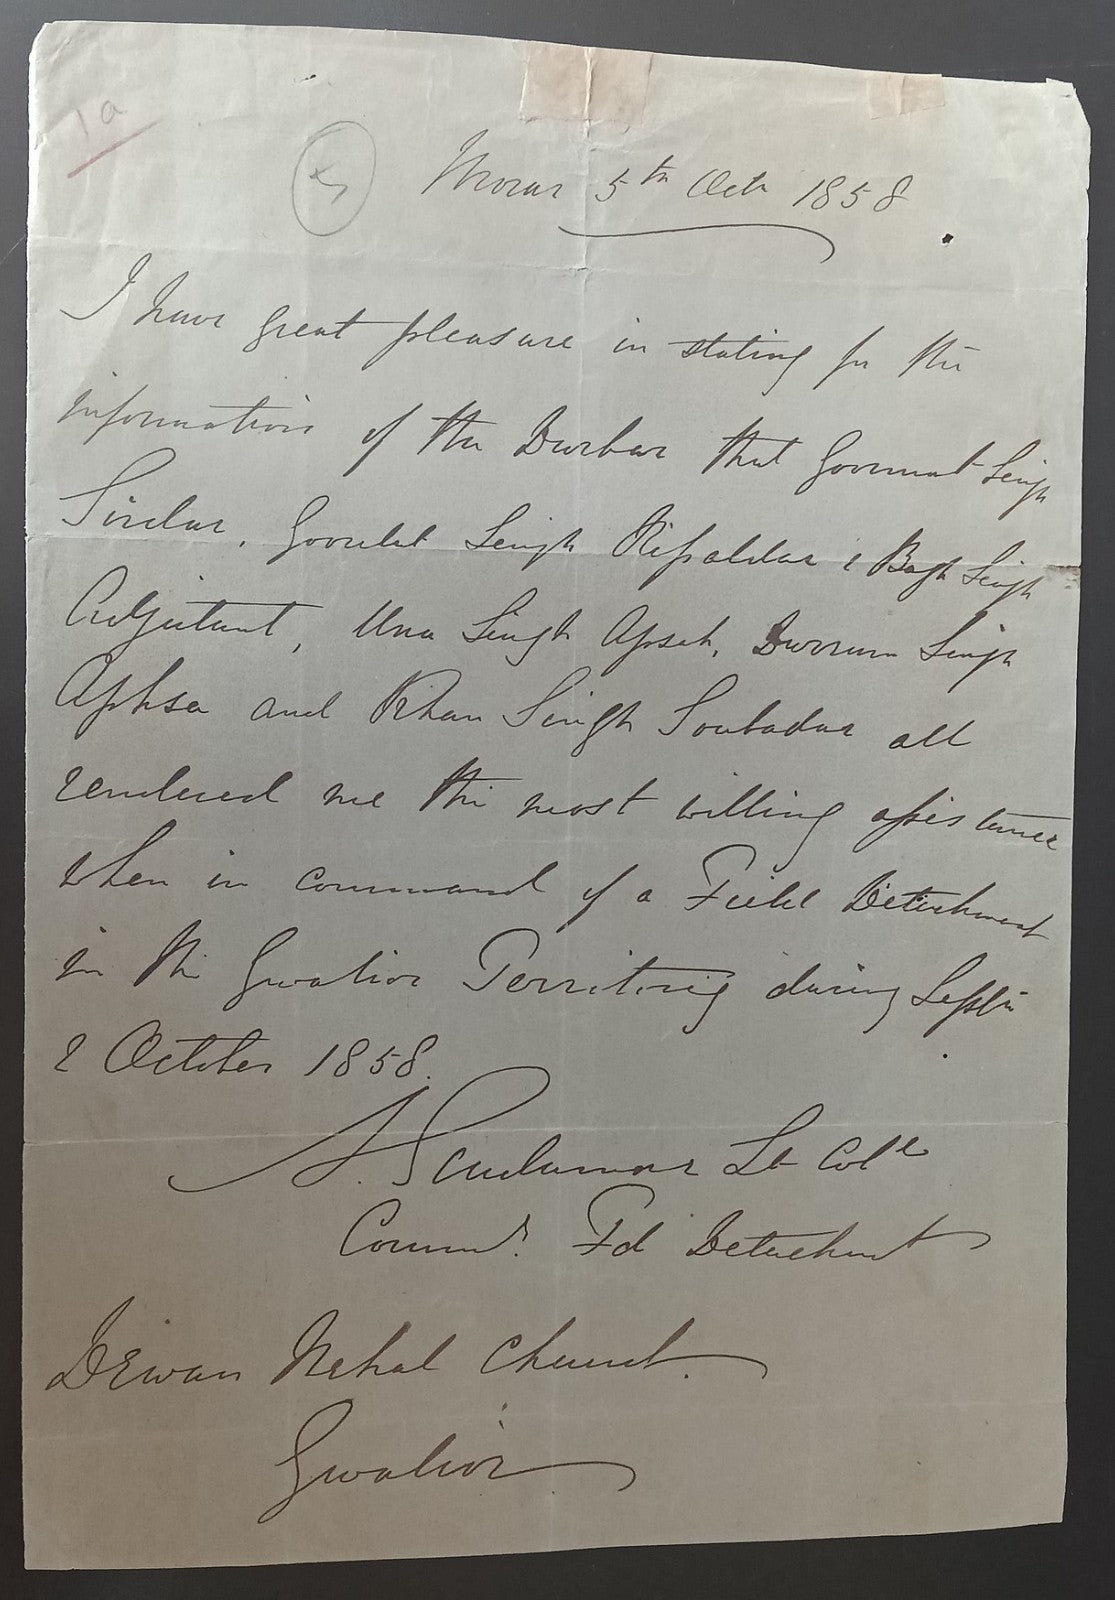 1a
Morar 5th Octr 1858
I have great pleasure in stating for the
information of the Durbar that Goormat Singh
Sirdar, Goordit Singh Rissaldar & Bagh Singh
Adjutant, Una Singh Apsah, Durrum Singh
Aphsa and Khan Singh Soubadar all
rendered me the most willing assistance
when in command of a Field Detachment
in the Gwalior Territory during Septr
& October 1858.
Scudamore Lt Coll
Commd. Fd Detachment
Dewan Nehal Chund.
Gwalior